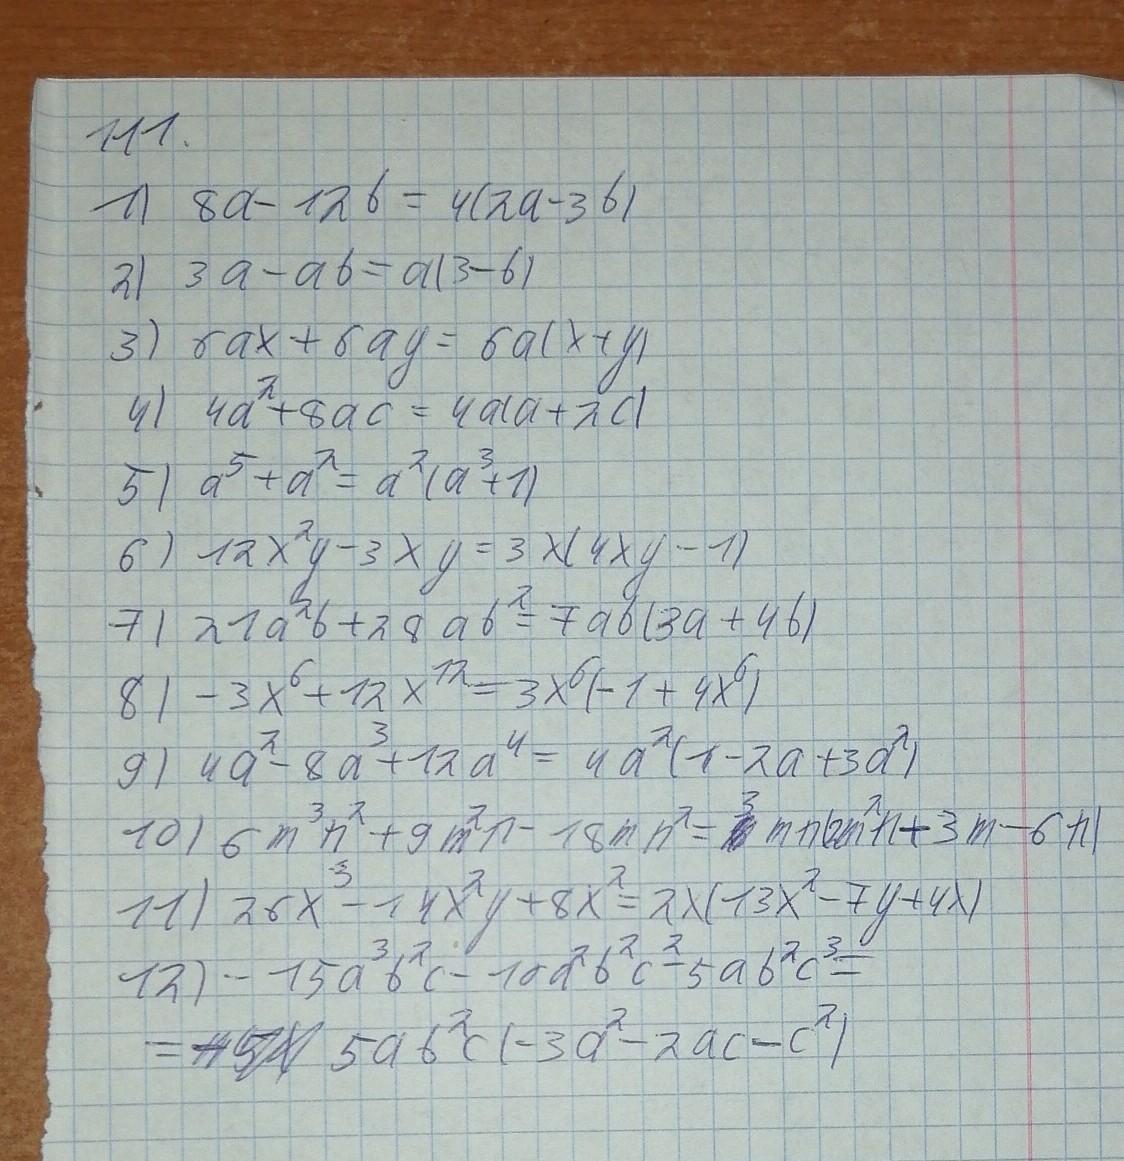 111.
1) 8a - 12b = 4(2a - 3b)
2) 3a - ab = a(3 - b)
3) 6ax + 6ay = 6a(x + y)
4) 4a² + 8ac = 4a(a + 2c)
5) a⁵ + a² = a²(a³ + 1)
6) 12x²y - 3xy = 3x(4xy - 1)
7) 21a²b + 28ab² = 7ab(3a + 4b)
8) -3x⁶ + 12x¹² = 3x⁶(-1 + 4x⁶)
9) 4a² - 8a³ + 12a⁴ = 4a²(1 - 2a + 3a²)
10) 6m³n² + 9m²n - 18mn² = 3mn(2m²n + 3m - 6n)
11) 26x³ - 14x²y + 8x² = 2x(13x² - 7y + 4x)
12) -15a³b²c - 10a²b²c² - 5ab²c³ =
= 5ab²c(-3a² - 2ac - c²)